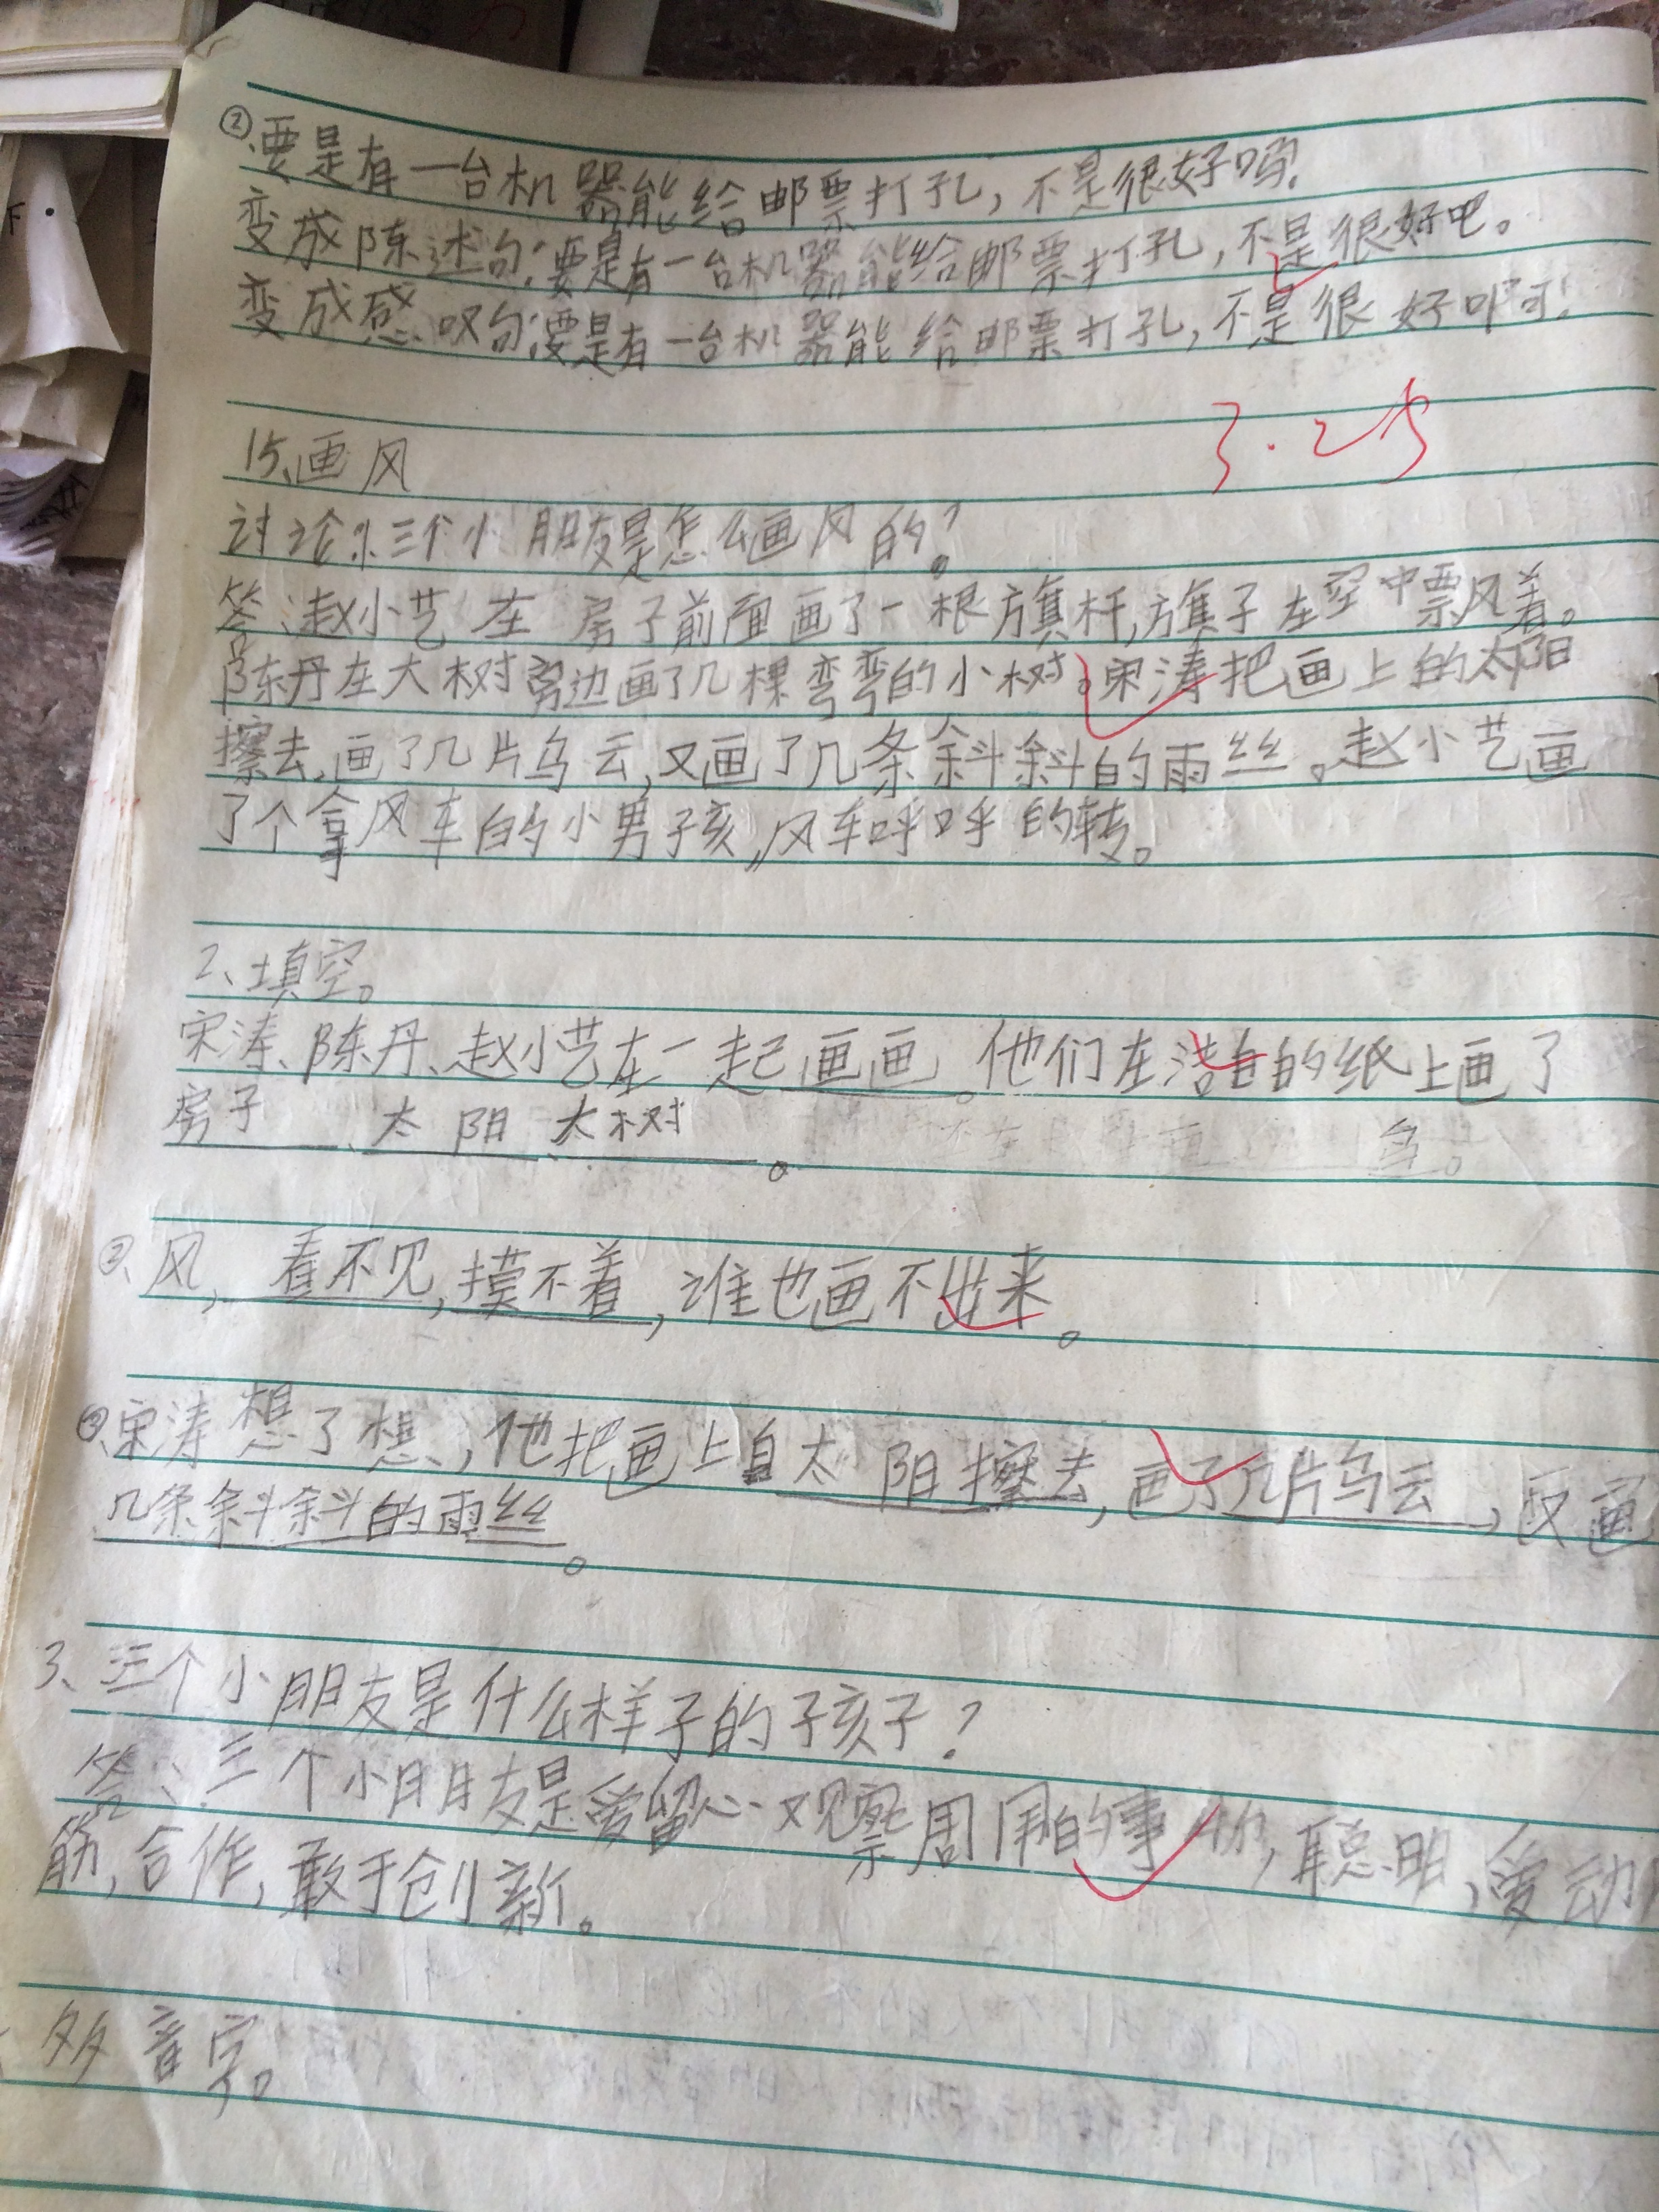 ②要是有一台机器能给邮票打孔,不是很好吗?
变成陈述句:要是有一台机器能给邮票打孔,不是很好吧。
变成感叹句:要是有一台机器能给邮票打孔,不是很好啊!
3.25
15、画风
讨论:三个小朋友是怎么画风的?
答:赵小艺在房子前面画了一根旗杆,旗子在空中票风着。
陈丹在大树旁边画了几棵弯弯的小树。宋涛把画上的太阳
擦去,画了几片乌云,又画了几条斜斜的雨丝。赵小艺画
了个拿风车的小男孩,风车呼呼的转。
2、填空。
宋涛、陈丹、赵小艺在一起画画。他们在洁白的纸上画了
房子、太阳、大树。
②、风,看不见,摸不着,谁也画不出来。
③宋涛想了想,他把画上自太阳擦去,画了几片乌云,又画
几条斜斜的雨丝。
3、三个小朋友是什么样子的孩子?
答:三个小朋友是爱留心观察周围的事物,聪明,爱动
筋,合作,敢于创新。
多音字。